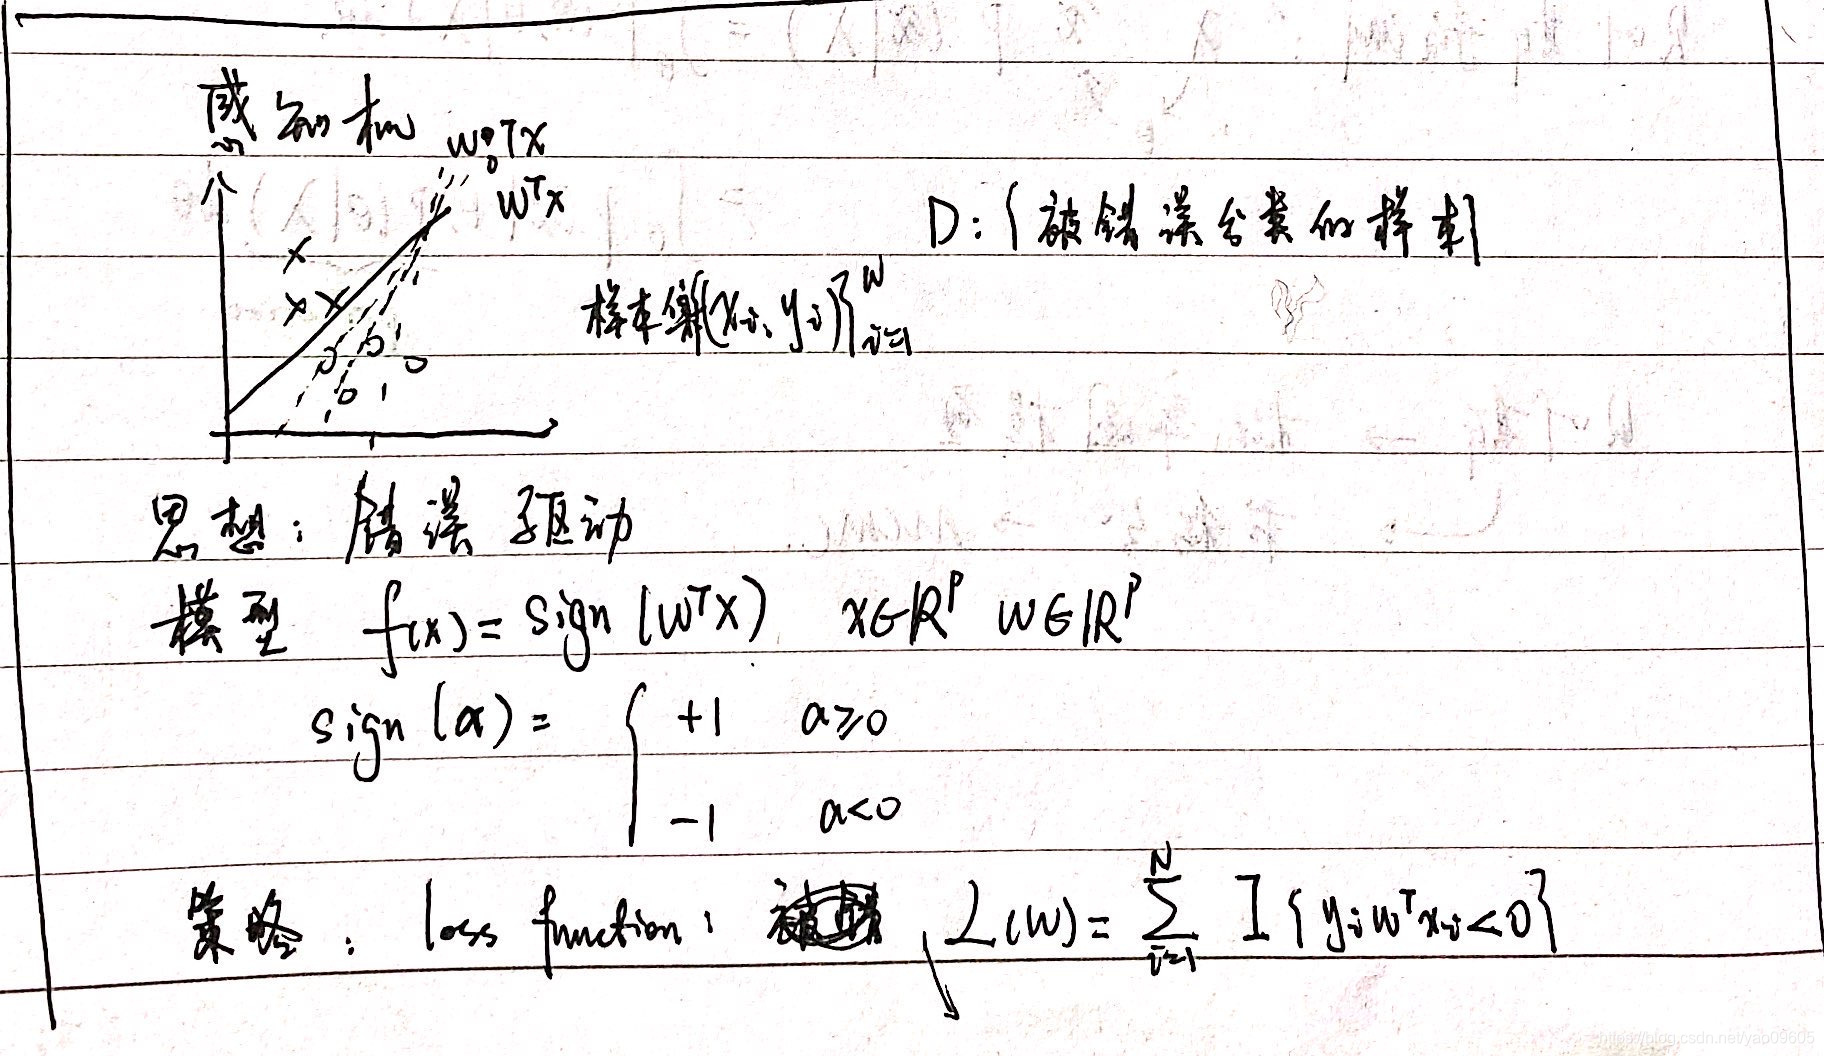 感知机
W₀ᵀx
Wᵀx
D:{被错误分类的样本}
样本集{(xᵢ, yᵢ)}ᵢ₌₁ᴺ
思想: 错误驱动
模型 f(x) = sign(WᵀX) x∈ℝᵖ w∈ℝᵖ
sign(a) = { +1 a≥0
-1 a<0
策略: loss function: L(W) = ∑ᵢ₌₁ᴺ I{yᵢwᵀxᵢ<0}
https://blog.csdn.net/yao09605